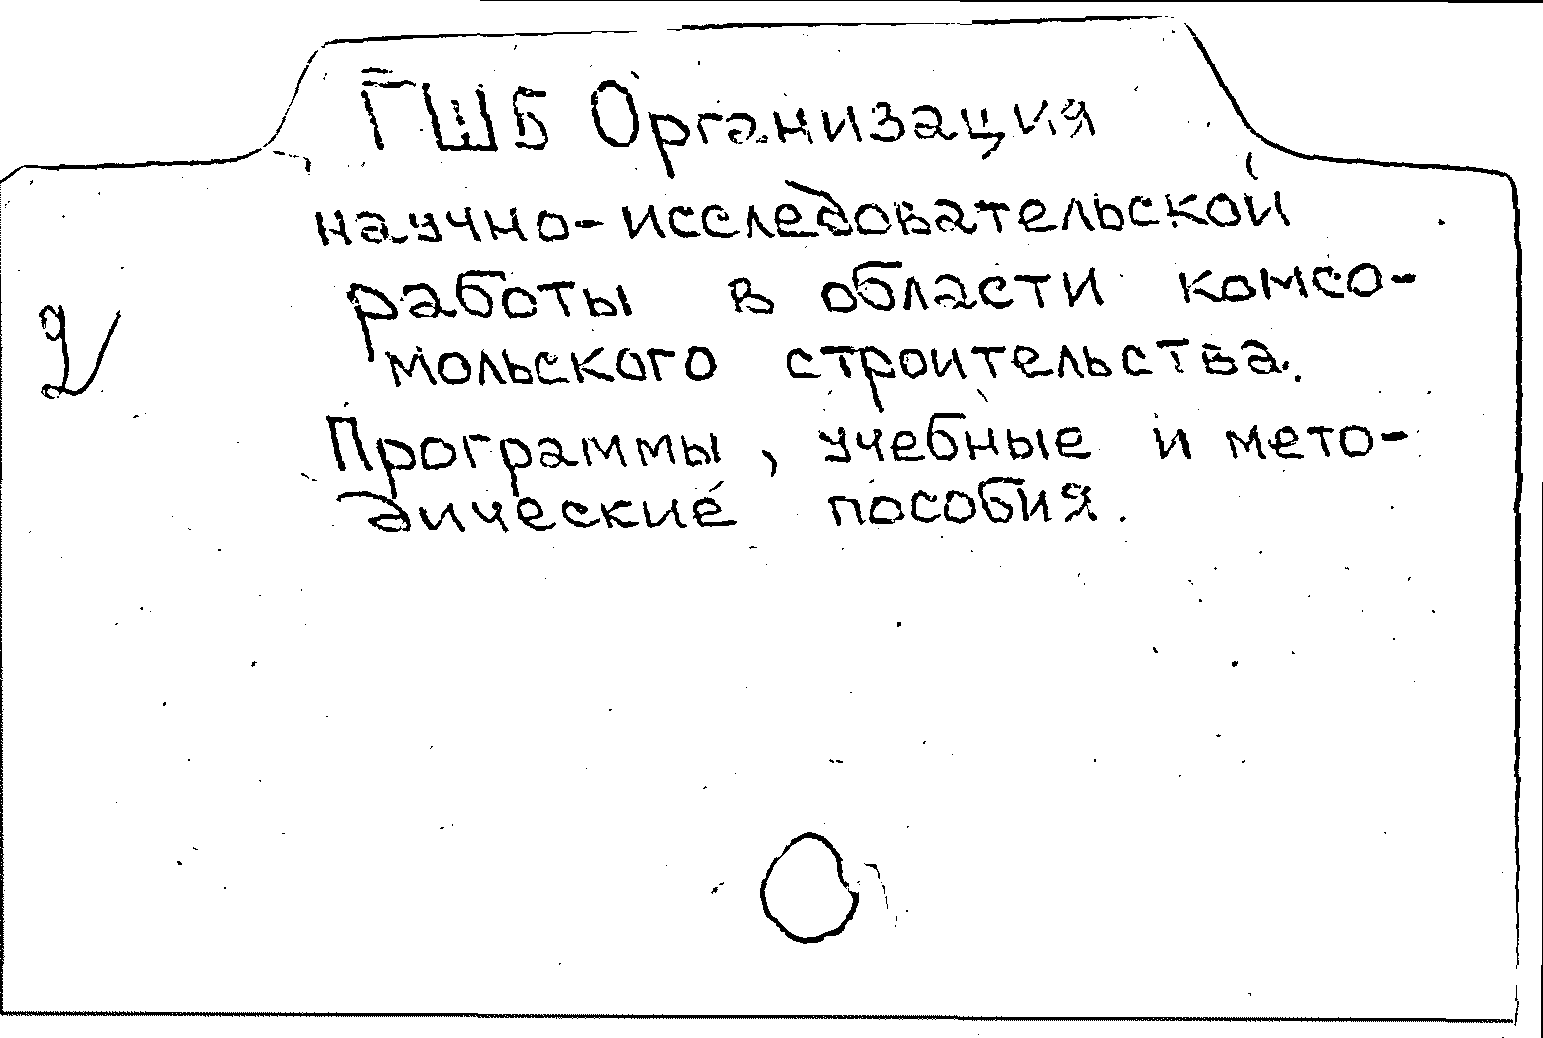 ГШБ Организация
научно-исследовательской
работы в области комсо-
мольского строительства.
Программы, учебные и мето-
дические пособия.